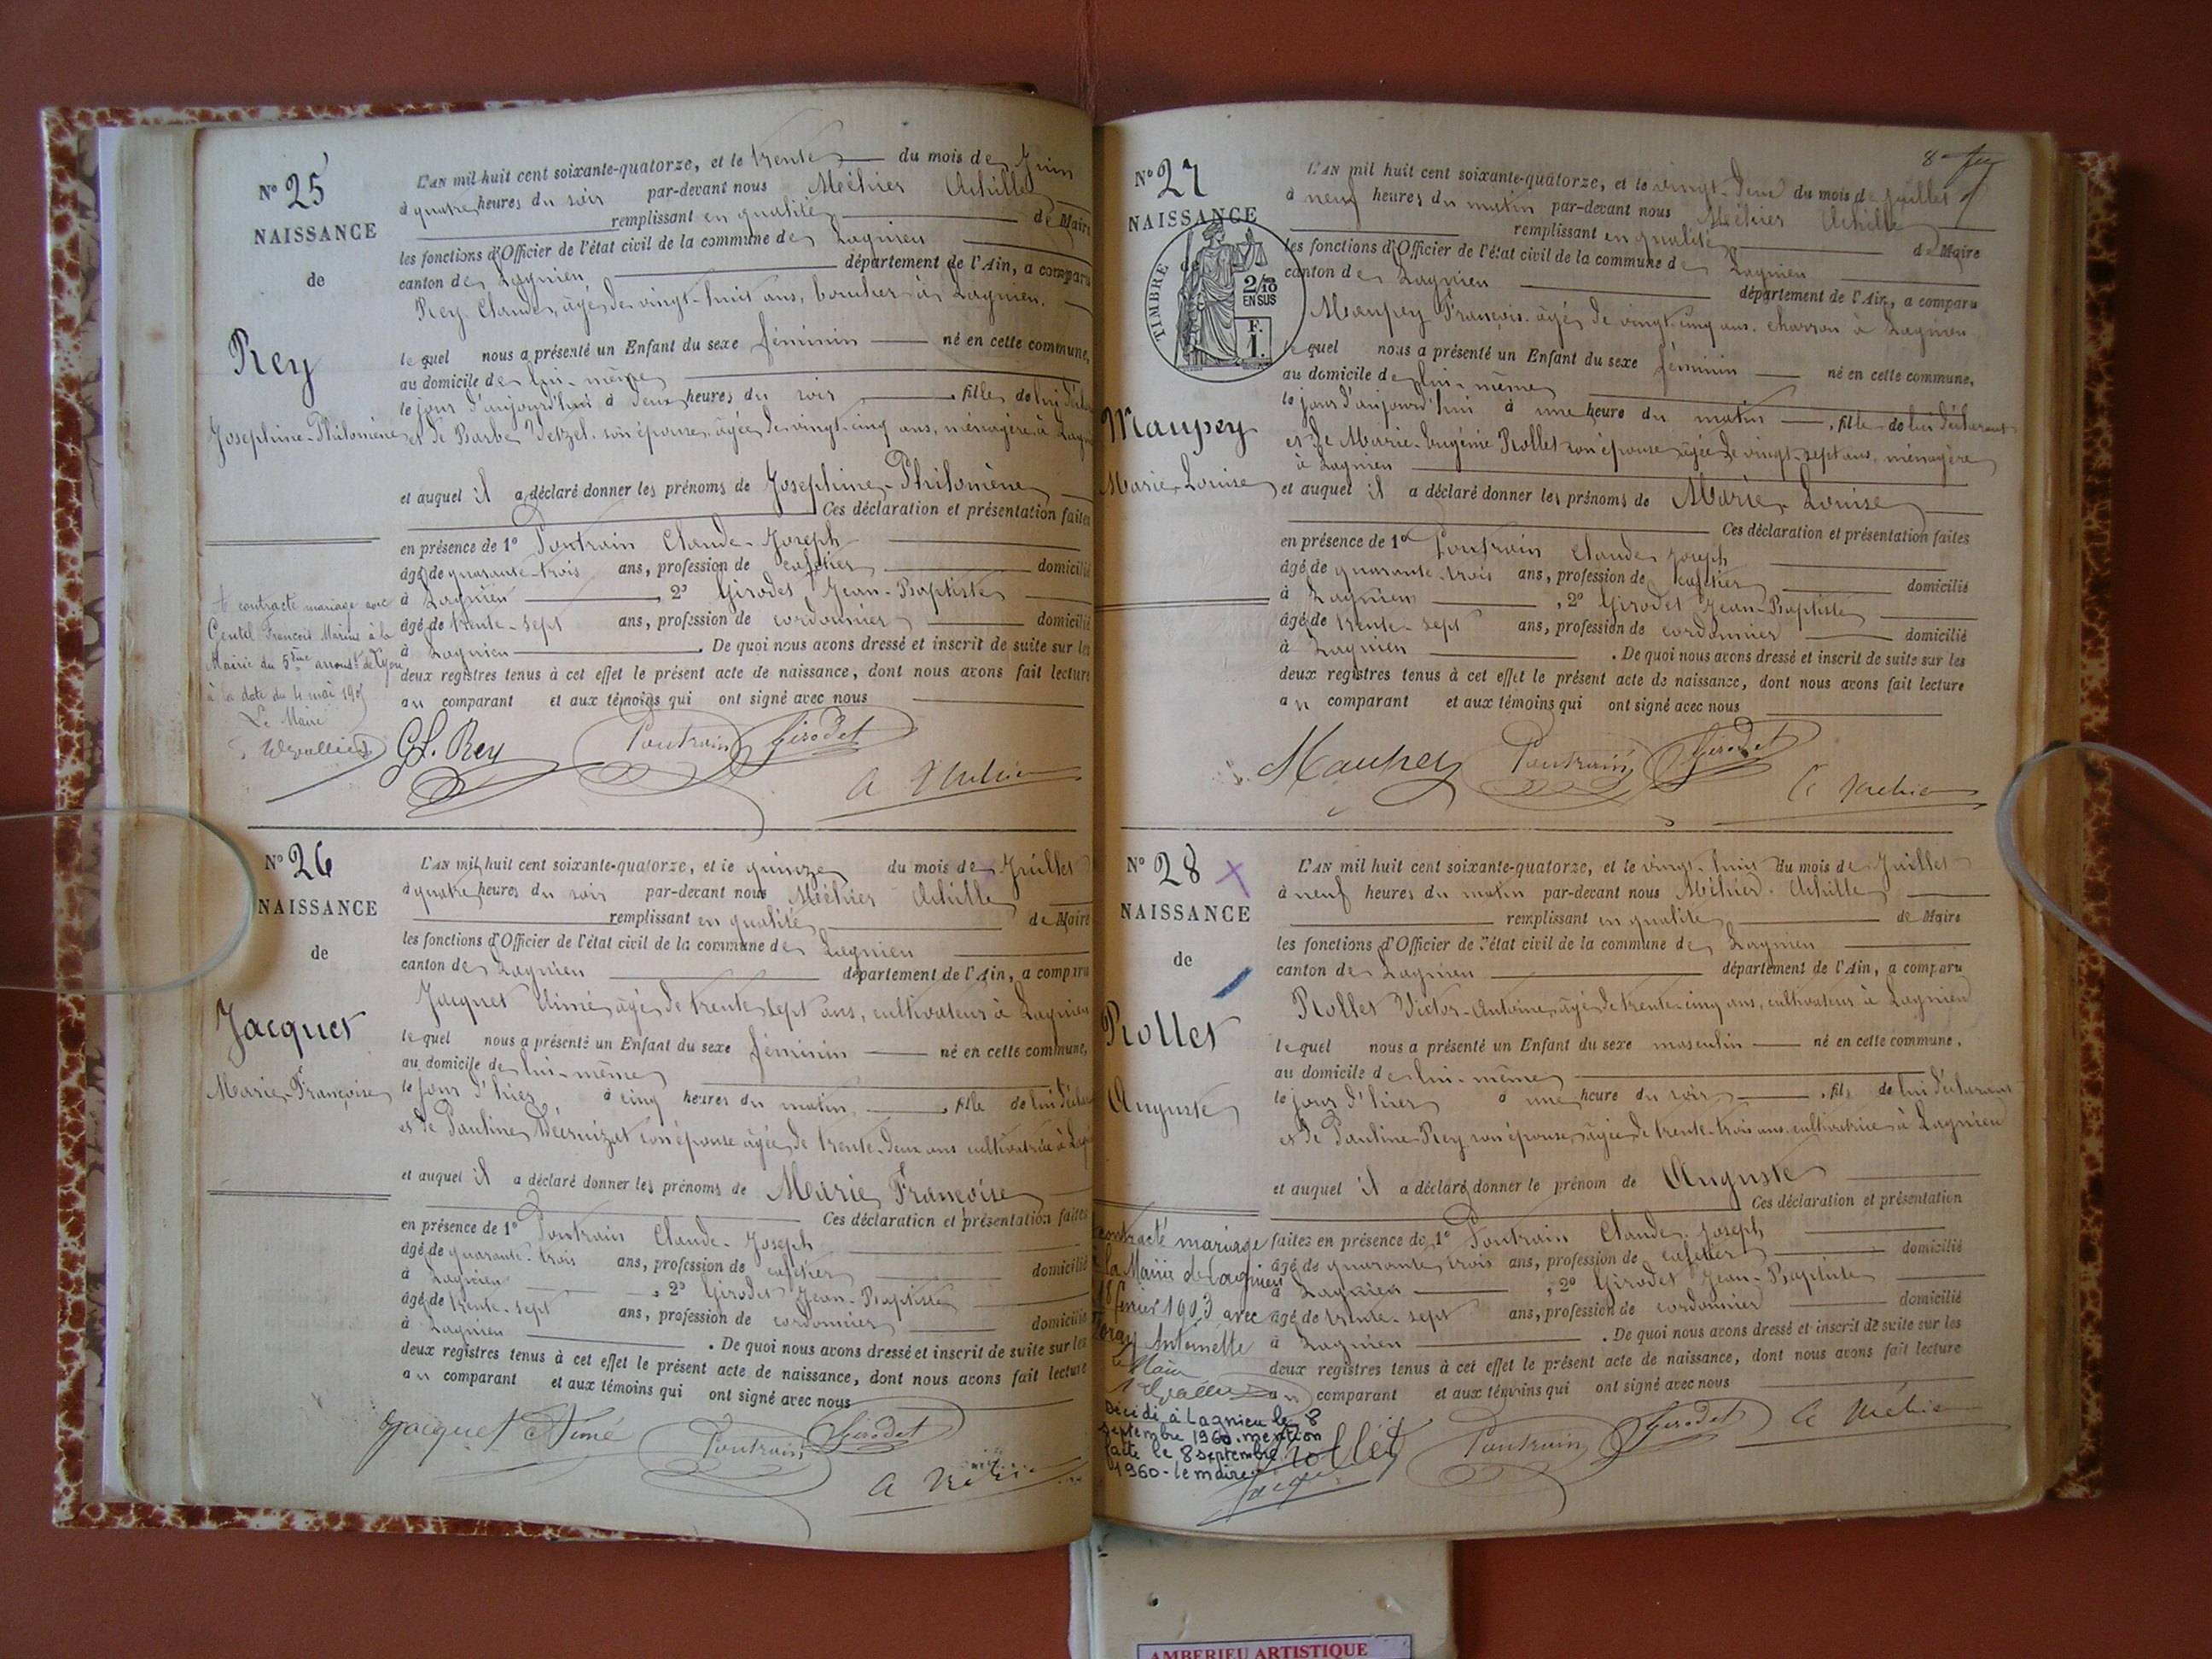 N° 25
NAISSANCE
de
Rey
Josephine-Philomène
L'AN mil huit cent soixante-quatorze, et le trente du mois de Juin
à quatre heures du soir par-devant nous Méhier Achille
remplissant en qualité de Maire
les fonctions d'Officier de l'état civil de la commune de Lagnieu
canton de Lagnieu département de l'Ain, a comparu
Rey Claude, âgé de vingt-huit ans, boucher à Lagnieu.
lequel nous a présenté un Enfant du sexe féminin né en cette commune,
au domicile de lui-même
le jour d'aujourd'hui à deux heures du soir fille de lui
et de Barbe Vetzel son épouse, âgée de vingt-cinq ans, ménagère à
et auquel il a déclaré donner les prénoms de Josephine-Philomène
Ces déclaration et présentation faites
en présence de 1° Poutrain Claude-Joseph
âgé de quarante-trois ans, profession de cafetier domicilié
à Lagnieu, 2° Girodet Jean-Baptiste
âgé de trente-sept ans, profession de cordonnier domicilié
à Lagnieu. De quoi nous avons dressé et inscrit de suite sur les
deux registres tenus à cet effet le présent acte de naissance, dont nous avons fait lecture
au comparant et aux témoins qui ont signé avec nous
A contracté mariage avec
Gentil François Marius à la
Mairie du 5ème arrondt de Lyon
à la date du 4 mai
Le Maire
Rey Poutrain Girodet
A Méhier
N° 26
NAISSANCE
de
Jacquet
Marie-Françoise
L'AN mil huit cent soixante-quatorze, et le quinze du mois de Juillet
à quatre heures du soir par-devant nous Méhier Achille
remplissant en qualité de Maire
les fonctions d'Officier de l'état civil de la commune de Lagnieu
canton de Lagnieu département de l'Ain, a comparu
Jacquet Aimé, âgé de trente-sept ans, cultivateur à Lagnieu
lequel nous a présenté un Enfant du sexe féminin né en cette commune,
au domicile de lui-même
le jour d'hier à cinq heures du matin, fille de lui
et de Pauline son épouse âgée de trente-deux ans cultivatrice à
et auquel il a déclaré donner les prénoms de Marie Françoise
Ces déclaration et présentation faites
en présence de 1° Poutrain Claude-Joseph
âgé de quarante-trois ans, profession de cafetier domicilié
à Lagnieu, 2° Girodet Jean-Baptiste
âgé de trente-sept ans, profession de cordonnier domicilié
à Lagnieu. De quoi nous avons dressé et inscrit de suite sur les
deux registres tenus à cet effet le présent acte de naissance, dont nous avons fait lecture
au comparant et aux témoins qui ont signé avec nous
Jacquet Aimé Poutrain Girodet
A Méhier
8
N° 27
NAISSANCE
de
TIMBRE
2/10
EN SUS
F.
1.
Maupey
Marie-Louise
L'AN mil huit cent soixante-quatorze, et le vingt-deux du mois de Juillet
à neuf heures du matin par-devant nous Méhier Achille
remplissant en qualité de Maire
les fonctions d'Officier de l'état civil de la commune de Lagnieu
canton de Lagnieu département de l'Ain, a comparu
Maupey François âgé de vingt-cinq ans, charron à Lagnieu
lequel nous a présenté un Enfant du sexe féminin né en cette commune,
au domicile de lui-même
le jour d'aujourd'hui à une heure du matin, fille de lui déclarant
et de Marie-Eugénie Rollet son épouse âgée de vingt-sept ans, ménagère
à Lagnieu
et auquel il a déclaré donner les prénoms de Marie-Louise
Ces déclaration et présentation faites
en présence de 1° Poutrain Claude Joseph
âgé de quarante-trois ans, profession de cafetier domicilié
à Lagnieu, 2° Girodet Jean-Baptiste
âgé de trente-sept ans, profession de cordonnier domicilié
à Lagnieu. De quoi nous avons dressé et inscrit de suite sur les
deux registres tenus à cet effet le présent acte de naissance, dont nous avons fait lecture
au comparant et aux témoins qui ont signé avec nous
Maupey Poutrain Girodet
A Méhier
N° 28
NAISSANCE
de
Rollet
Auguste
L'AN mil huit cent soixante-quatorze, et le vingt-huit du mois de Juillet
à neuf heures du matin par-devant nous Méhier Achille
remplissant en qualité de Maire
les fonctions d'Officier de l'état civil de la commune de Lagnieu
canton de Lagnieu département de l'Ain, a comparu
Rollet Victor-Antoine, âgé de trente-cinq ans, cultivateur à Lagnieu
lequel nous a présenté un Enfant du sexe masculin né en cette commune,
au domicile de lui-même
le jour d'hier à une heure du soir, fils de lui déclarant
et de Pauline Rey son épouse, âgée de trente-trois ans cultivatrice à Lagnieu
et auquel il a déclaré donner le prénom de Auguste
Ces déclaration et présentation
faites en présence de 1° Poutrain Claude-Joseph
âgé de quarante-trois ans, profession de cafetier domicilié
à Lagnieu, 2° Girodet Jean-Baptiste
âgé de trente-sept ans, profession de cordonnier domicilié
à Lagnieu. De quoi nous avons dressé et inscrit de suite sur les
deux registres tenus à cet effet le présent acte de naissance, dont nous avons fait lecture
au comparant et aux témoins qui ont signé avec nous
contracté mariage
à la Mairie de Lagnieu
février 1903 avec
Antoinette
le Maire
Décidé à Lagnieu le 8
septembre 1960. mention
faite le 8 septembre
1960 - le maire
Rollet Poutrain Girodet A Méhier
AMBERIEU ARTISTIQUE